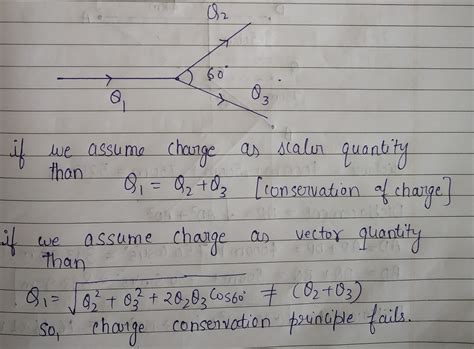 Q2
60°
Q1
Q3
if we assume charge as scalar quantity
than
Q1 = Q2 + Q3 [conservation of charge]
if we assume charge as vector quantity
than
Q1 = √Q2² + Q3² + 2Q2Q3 Cos60° ≠ (Q2 + Q3)
so, charge conservation principle fails.